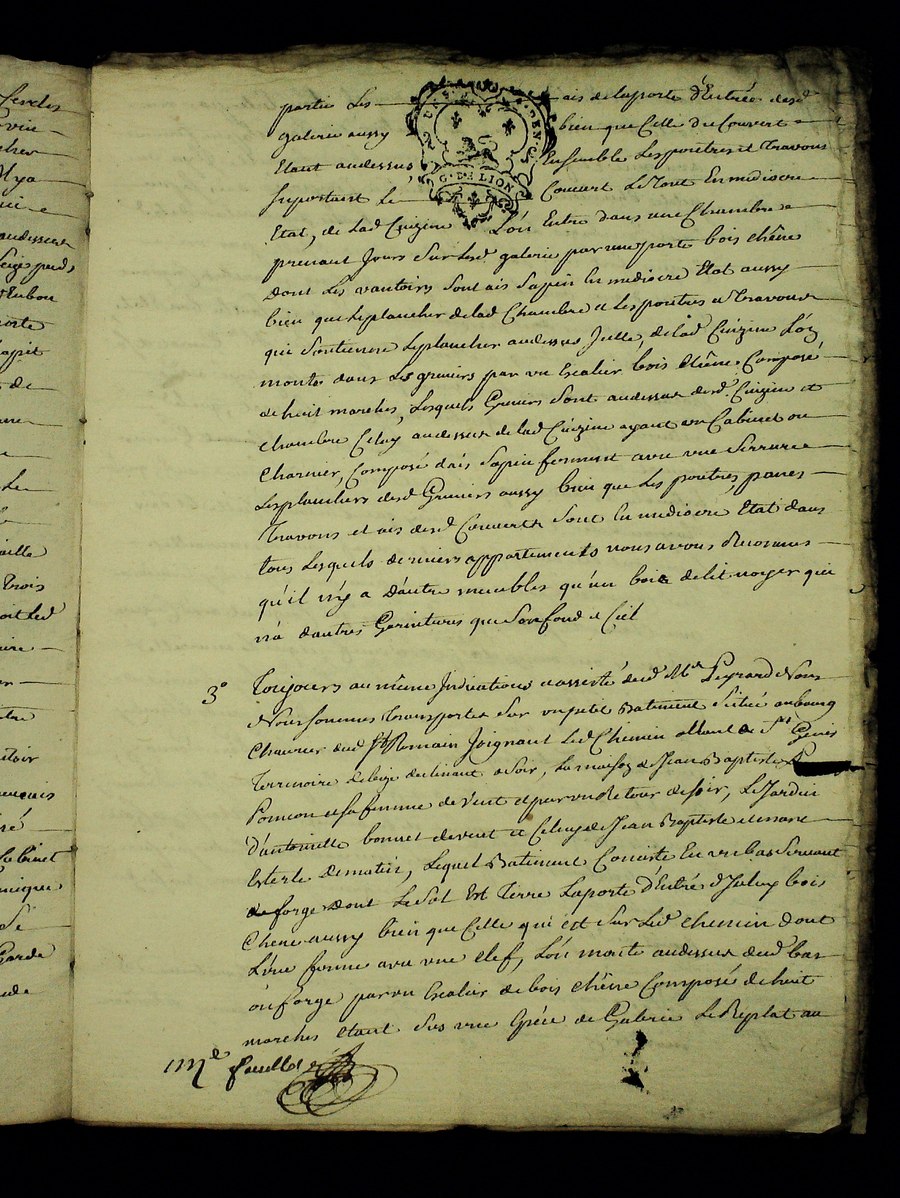 partie les ais de la porte d'Entrée desd.
galerie aussy bien que Celle du Couvert
Etant audessus Ensemble Les poutres et Travons
suportant Le Couvert Le Tout En mediocre
Etat, de lad Cuizine L'on Entre dans une Chambre
prenant Jours sur lesd galerie par une porte bois chêne
dont Les vantoirs sont ais sapin En mediocre Etat aussy
bien que le plancher de lad Chambre et Les poutres et Travons
qui soutienne le plancher audessus Jcelle, de lad Cuizine L'on
monte dans Les greniers par un Escalier bois Chêne Composé
de huit marches, Lesquels Greniers sont audessus desd. Cuizine et
chambre Celuy audessus de lad Cuizine ayant un Cabinet ou
Charnier, Composé d'ais sapin fermant avec une Serrure
Les planchers desd Greniers aussy bien que Les poutres, panes
Travons et ais desd Couverts sont En mediocre Etat dans
tous Lesquels derniers appartements nous avons Reconnus
qu'il n'y a d'autre meubles qu'un bois de lit noyer qui
n'a d'autres Garnitures que son fond et Ciel
3° Toujours au même Jndications et assisté dud. Mr. Peyrard Nous
Nous sommes Transportés sur un petit Batiment Situé au bourg
dud St Romain Joignant Led Chemin allant de St Genis
Terrenoire de bize declinant a soir, La maison de Jean Baptiste
Poncon et sa femme de Vent et par un Retour de soir, Le Jardin
d'antoinette bonnet de vent et Celuy de Jean Baptiste
de matin, Lequel Batiment Consiste En un bas servant
de forge dont Le Sol Est Terre La porte d'Entrée d'Jceluy bois
Chene aussy bien que Celle qui est sur Led Chemin dont
L'une ferme avec une Clef, L'on monte audessus dud bas
ou forge par un Escalier de bois Chêne Composé de huit
marches Etant sur une Espéce de Galerie Le Replat au
G. DE LION